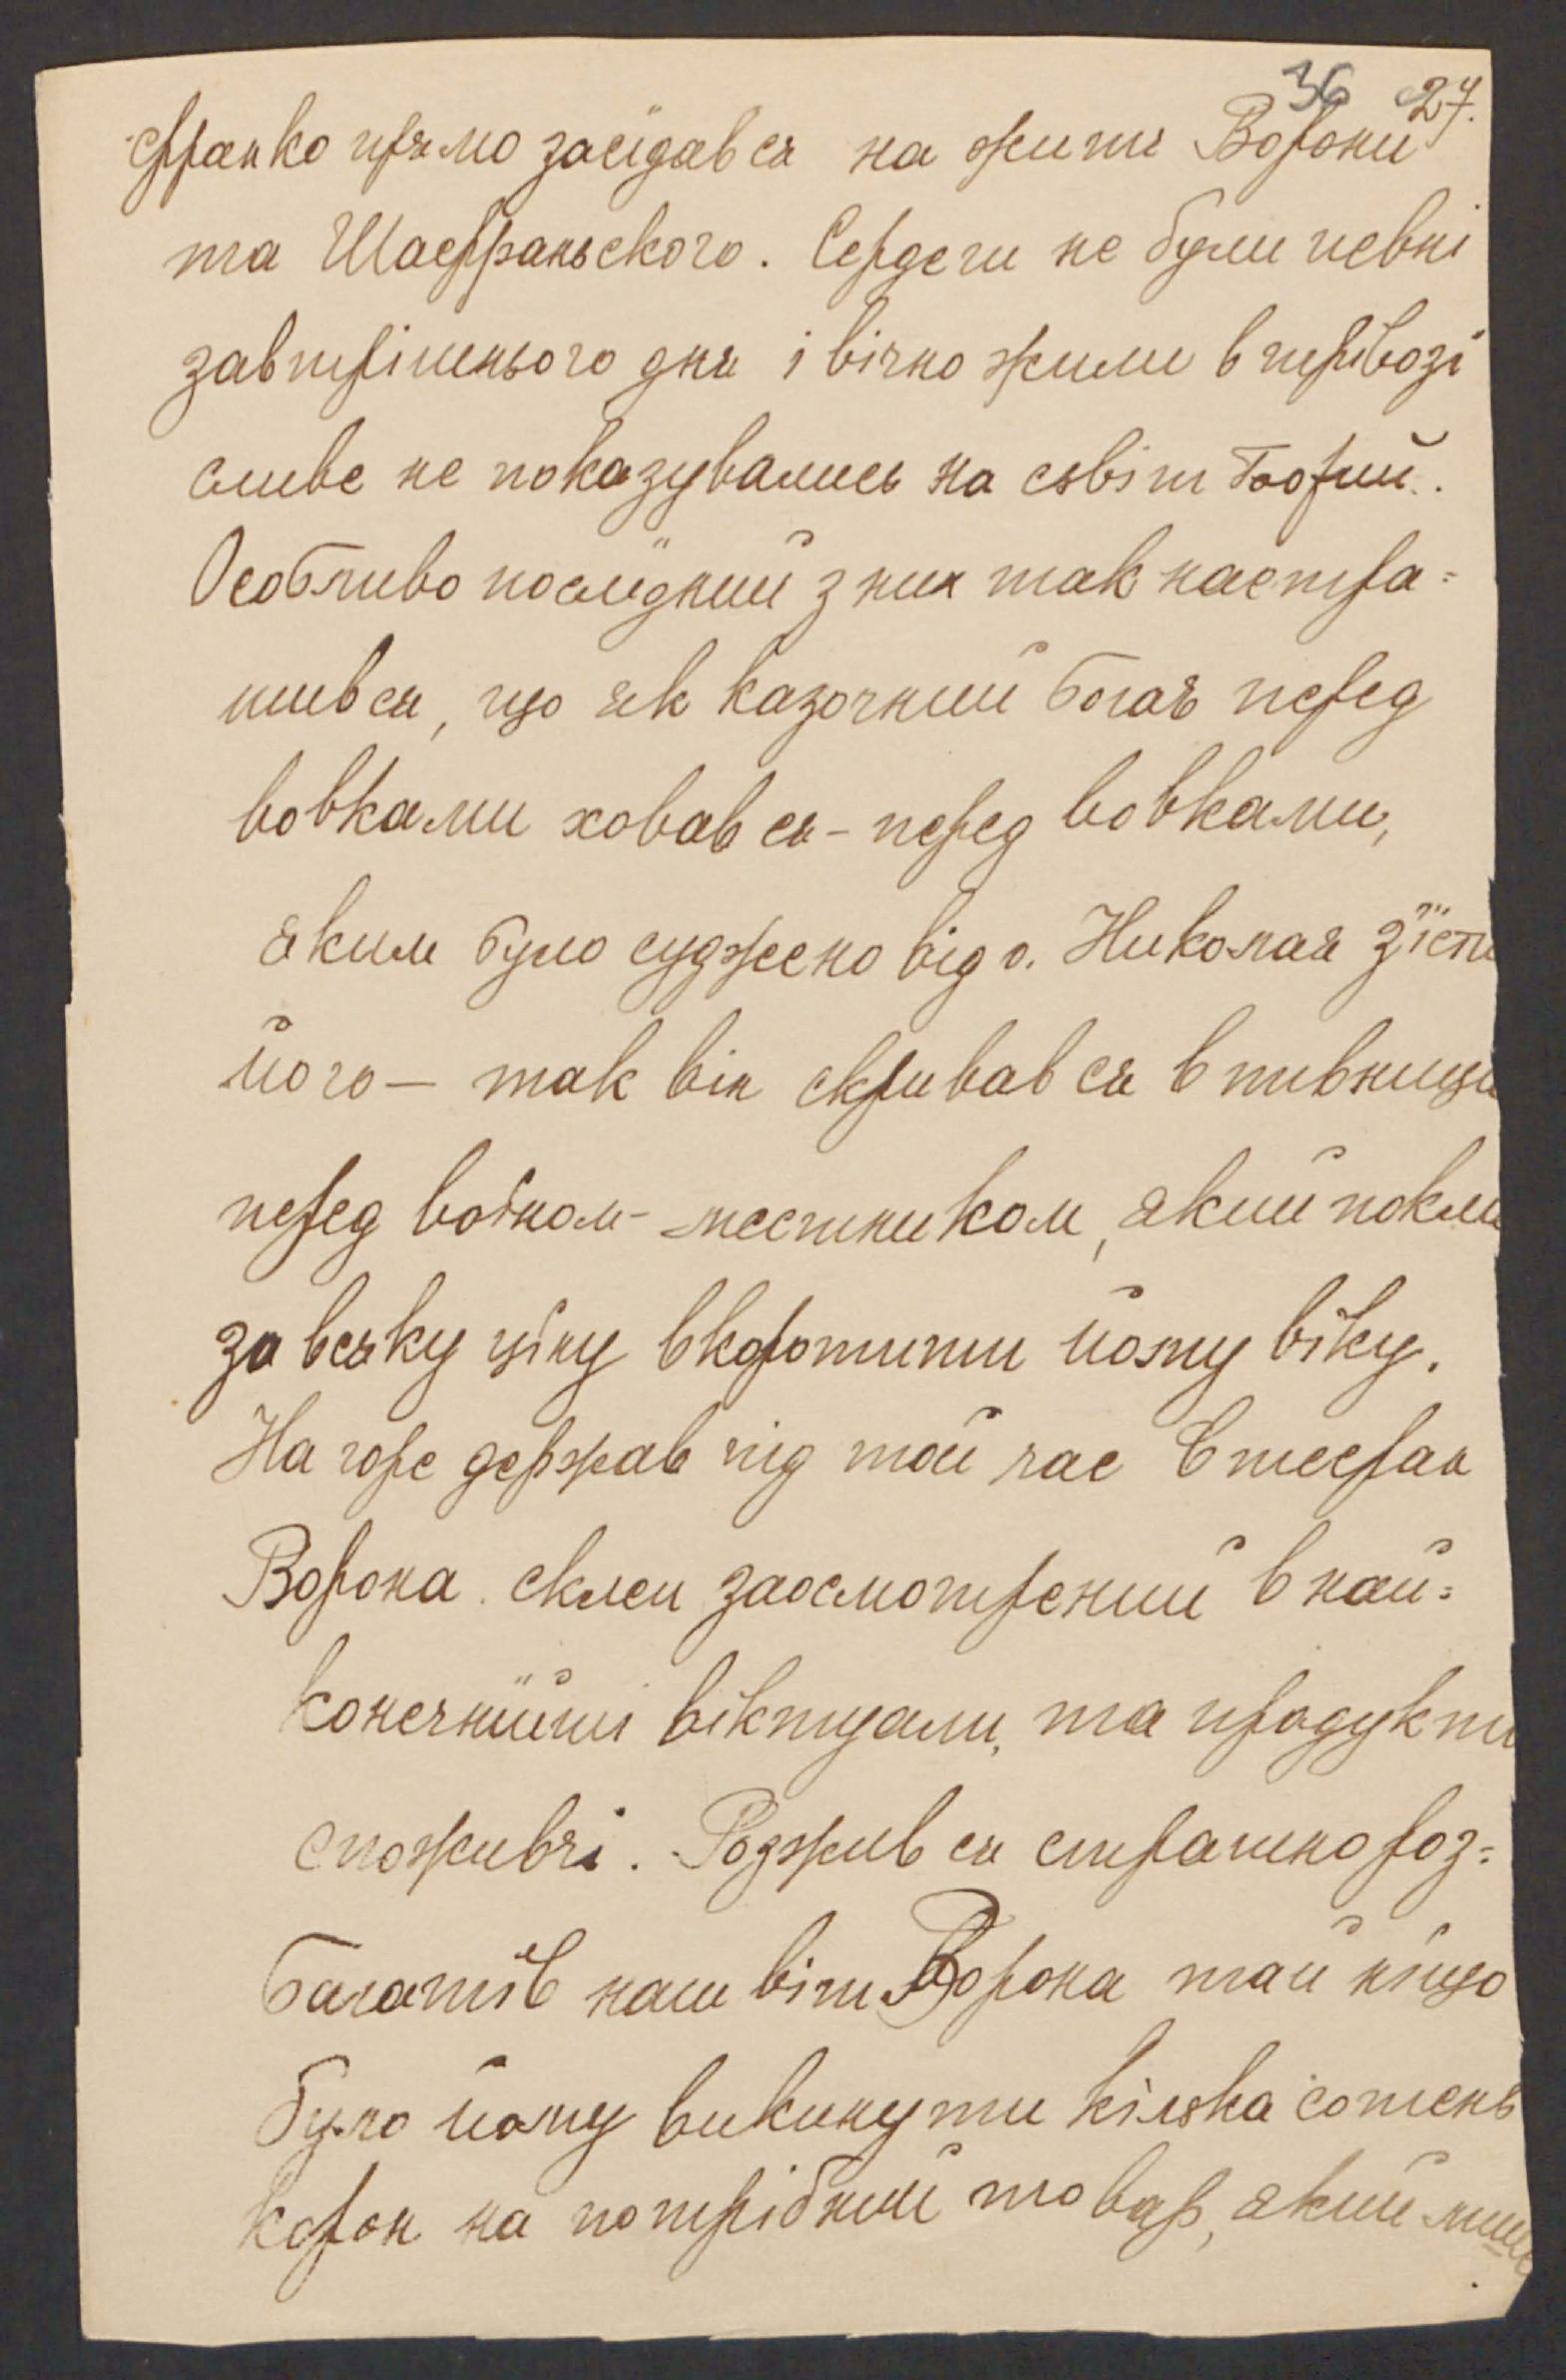 36 27.
Франко прямо засїдався на житє Ворони
та Шафраньского. Сердеги не були певні
завтрішнього дня і вічно жили в трівозі
сливе не показувались на сьвіт Божий.
Особливо послїдний з них так настра=
шився, що як казочний богач перед
вовками ховався - перед вовками,
яким було суджено від о. Николая зїсти
його — так він скривався в пивници
перед воїном - местником, який
за всяку цїну вкоротити йому віку.
На горе держав під той час Стефан
Ворона склеп заосмотрений в най=
конечнїйші віктуали, та продукти
споживчі. Розжився страшно роз=
багатїв наш віт Ворона тай нїщо
було йому викинути кілька сотень
корон на потрібний товар, який лише